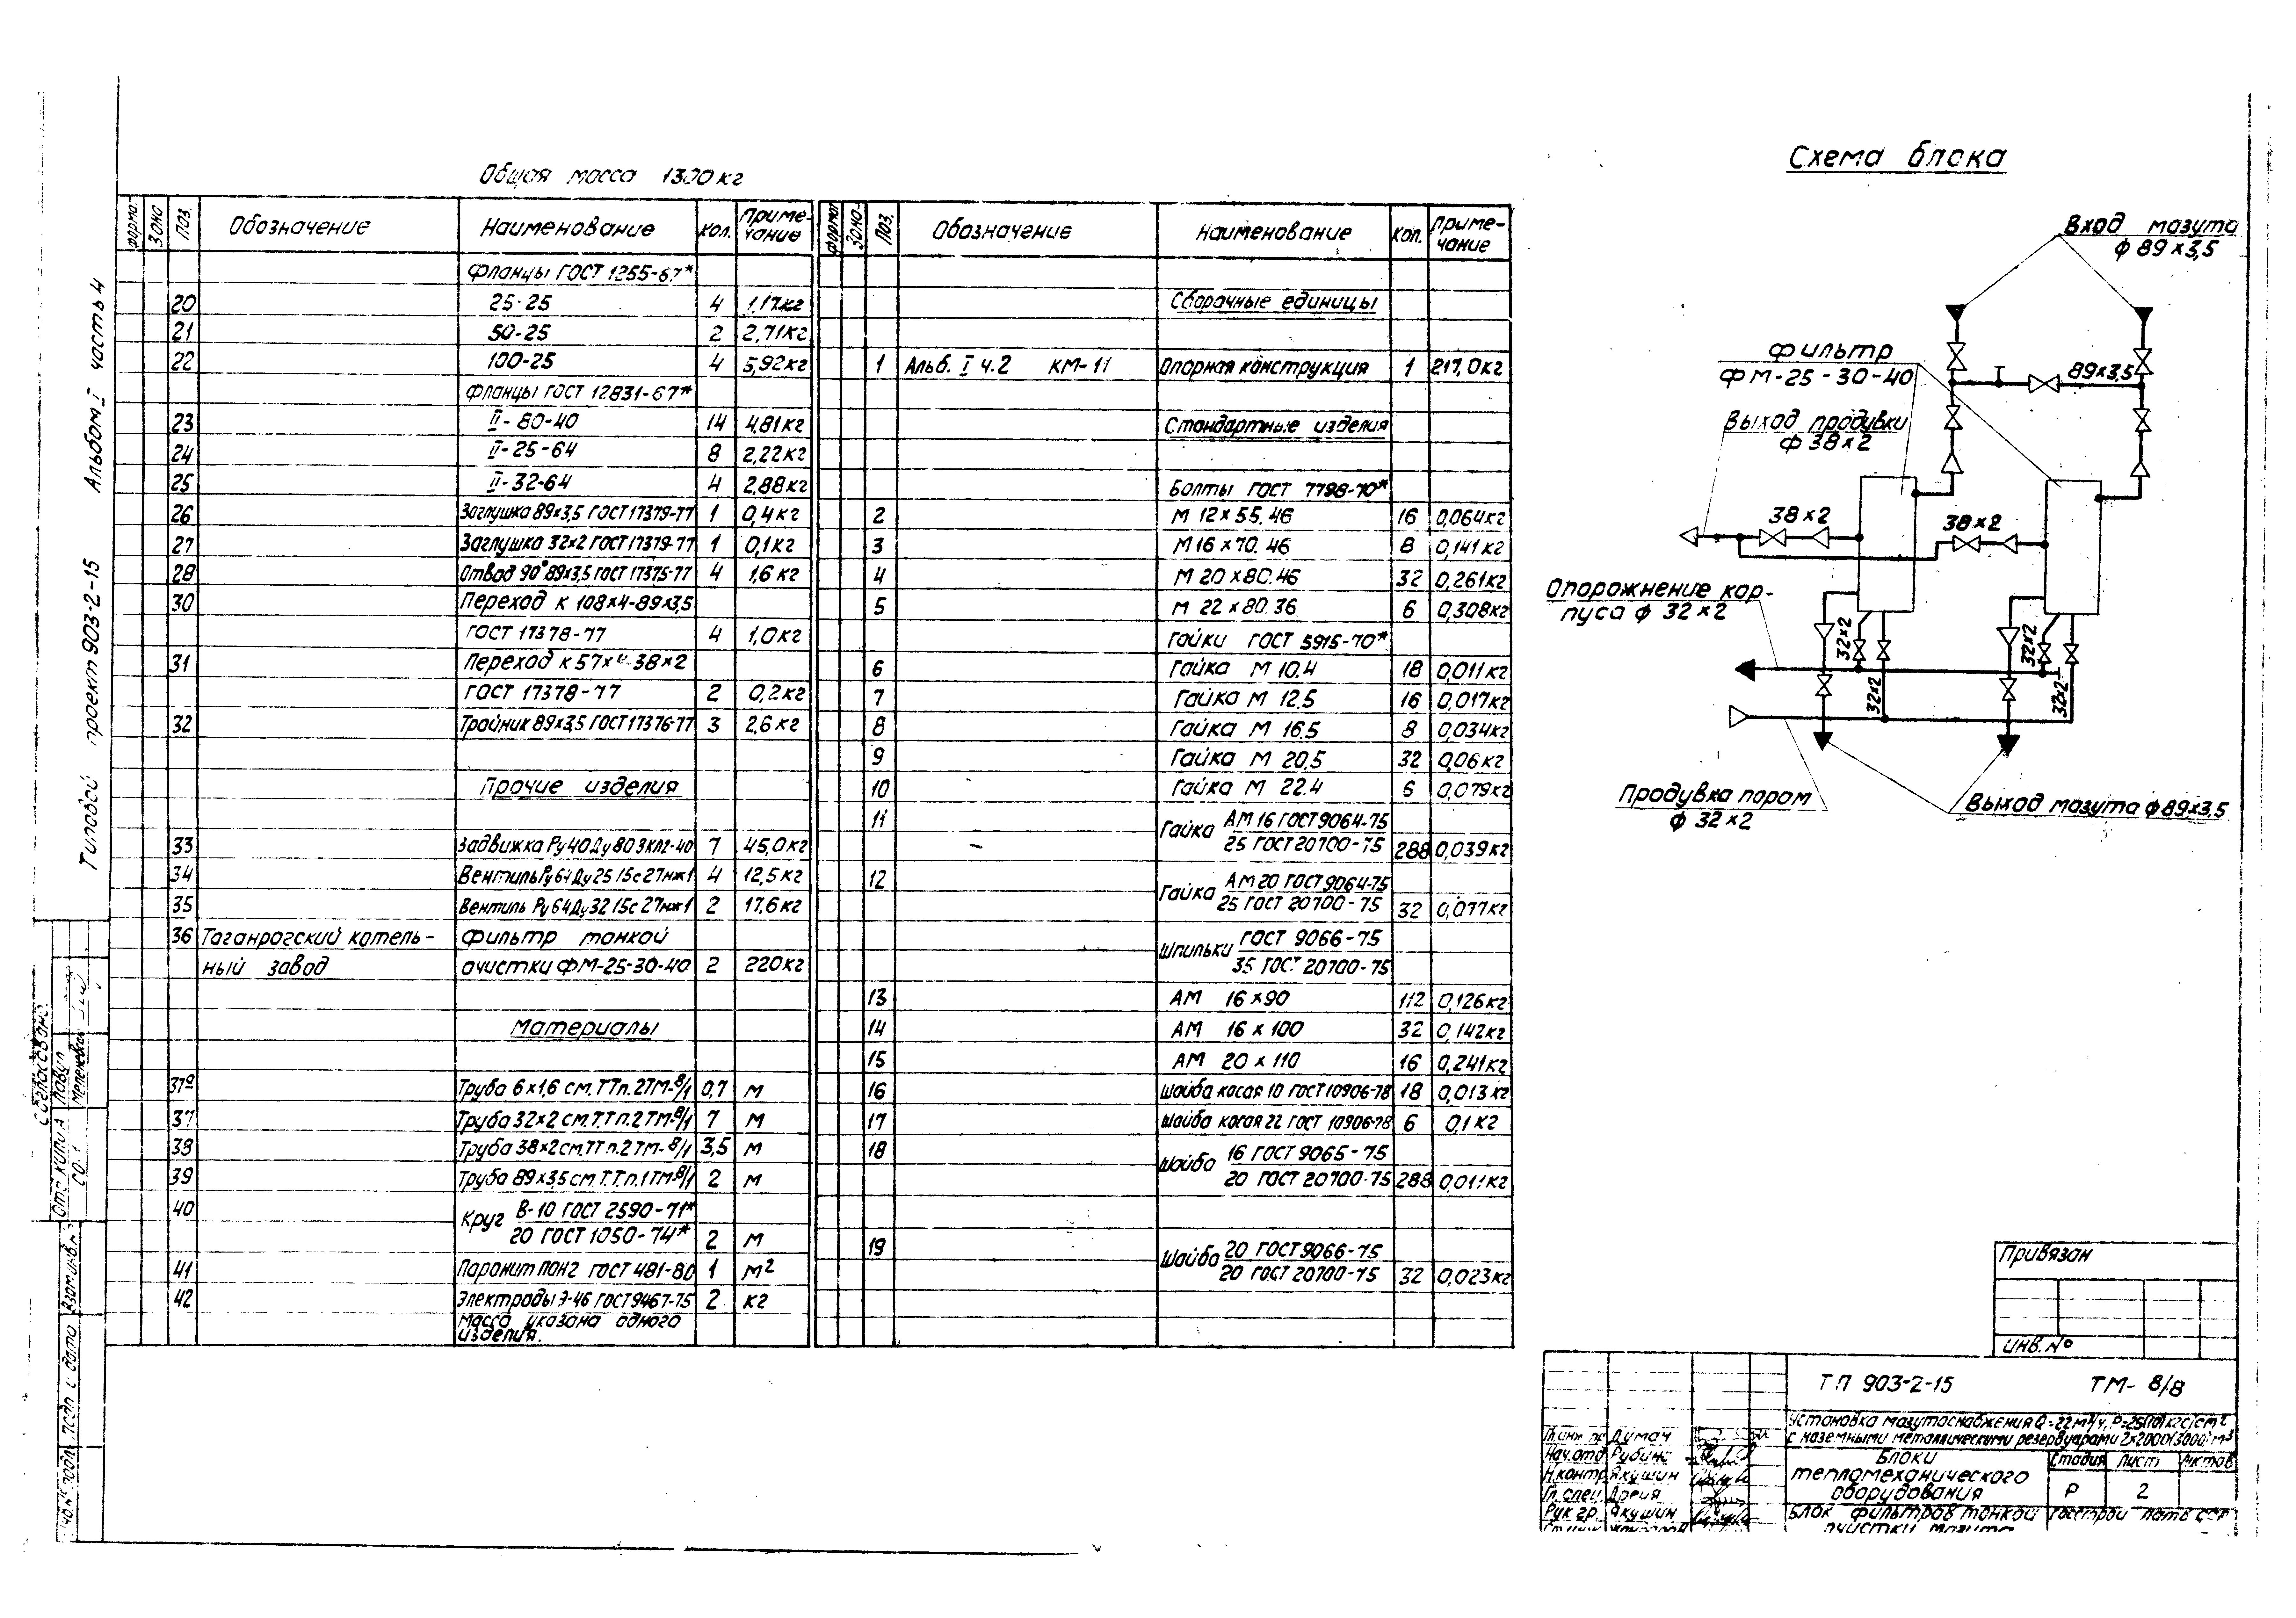 Общая масса 1300 кг
Поз. Обозначение Наименование Кол. Примечание
Фланцы ГОСТ 1255-67*
20 25-25 4 1,17кг
21 50-25 2 2,71кг
22 100-25 4 5,92кг
Фланцы ГОСТ 12831-67*
23 II-80-40 14 4,81кг
24 II-25-64 8 2,22кг
25 II-32-64 4 2,88кг
26 Заглушка 89х3,5 ГОСТ 17379-77 1 0,4кг
27 Заглушка 32х2 ГОСТ 17379-77 1 0,1кг
28 Отвод 90° 89х3,5 ГОСТ 17375-77 4 1,6 кг
30 Переход К 108х4-89х3,5
ГОСТ 17378-77 4 1,0кг
31 Переход К 57х4-38х2
ГОСТ 17378-77 2 0,2кг
32 Тройник 89х3,5 ГОСТ 17376-77 3 2,6кг
Прочие изделия
33 Задвижка Ру40 Ду80 ЗКЛ2-40 7 45,0кг
34 Вентиль Ру64 Ду25 15с27нж1 4 12,5кг
35 Вентиль Ру64 Ду32 15с27нж1 2 17,6кг
36 Таганрогский котель- Фильтр тонкой
ный завод очистки ФМ-25-30-40 2 220кг
Материалы
37а Труба 6х1,6 см. ТТп.2ТМ-8/1 0,7 м
37 Труба 32х2 см. ТТ п.2ТМ-8/1 7 м
38 Труба 38х2 см. ТТ п.2 ТМ-8/1 3,5 м
39 Труба 89х3,5 см. Т.Т. п.1 ТМ-8/1 2 м
40 Круг В-10 ГОСТ 2590-71*
20 ГОСТ 1050-74* 2 м
41 Паронит ПОН2 ГОСТ 481-80 1 м²
42 Электроды Э-46 ГОСТ 9467-75 2 кг
Масса указана одного
изделия.
Формат Зона Поз. Обозначение Наименование Кол. Примечание
Сборочные единицы
1 Альб. I ч.2 КМ-11 Опорная конструкция 1 217,0кг
Стандартные изделия
Болты ГОСТ 7798-70*
2 М 12х55.46 16 0,064кг
3 М16х70.46 8 0,141кг
4 М 20х80.46 32 0,261кг
5 М 22х80.36 6 0,308кг
Гайки ГОСТ 5915-70*
6 Гайка М 10.4 18 0,011кг
7 Гайка М 12.5 16 0,017кг
8 Гайка М 16.5 8 0,034кг
9 Гайка М 20.5 32 0,06кг
10 Гайка М 22.4 6 0,079кг
11 Гайка АМ 16 ГОСТ 9064-75
25 ГОСТ 20700-75 288 0,039кг
12 Гайка АМ 20 ГОСТ 9064-75
25 ГОСТ 20700-75 32 0,077кг
Шпильки ГОСТ 9066-75
35 ГОСТ 20700-75
13 АМ 16х90 112 0,126кг
14 АМ 16х100 32 0,142кг
15 АМ 20х110 16 0,241кг
16 Шайба косая 10 ГОСТ 10906-78 18 0,013кг
17 Шайба косая 22 ГОСТ 10906-78 6 0,1кг
18 Шайба 16 ГОСТ 9065-75
20 ГОСТ 20700-75 288 0,011кг
19 Шайба 20 ГОСТ 9066-75
20 ГОСТ 20700-75 32 0,023кг
Схема блока
Вход мазута
ф 89х3,5
Фильтр
ФМ-25-30-40
89х3,5
Выход продувки
ф 38х2
38х2
38х2
Опорожнение кор-
пуса ф 32х2
32х2
32х2
32х2
32х2
Продувка паром
ф 32х2
Выход мазута ф 89х3,5
Привязан
Инв. №
ТП 903-2-15 ТМ-8/8
Установка мазутоснабжения Q=22м³/ч, Р=25(10)кгс/см²
с наземными металлическими резервуарами 2х2000(3000)м³
Думач
Нач.отд Рубинс
Н.контр Якушин
Гл.спец.
Рук гр. Якушин
Блоки
тепломеханического
оборудования
Стадия Лист Листов
Р 2
Блок фильтров тонкой
очистки мазута
Госстрой Латв ССР
Типовой проект 903-2-15 Альбом I часть 4
Согласовано